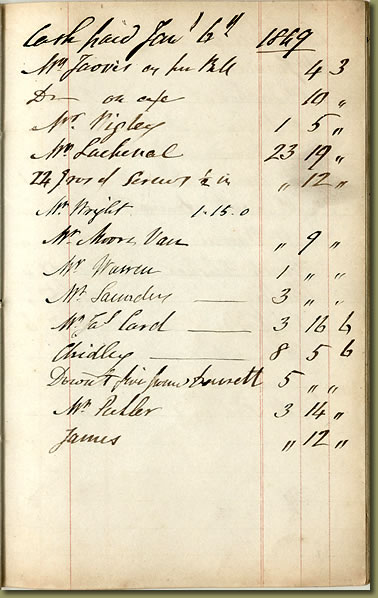 Cash paid Jany 6th 1849
Mr Jarvis on his Bill 4 3
Do on 10 "
Mr Rigley 1 5 "
Mr Lachenal 23 19 "
24 Gros of Screws ½ in " 12 "
Mr Wright 1-15-0
Mr Moore Van " 9 "
Mr Warren 1 " "
Mr Saunders 3 " "
Mr Jas Card 3 16 6
Chidley 8 5 6
five from 5 " "
Mr 3 14 "
James " 12 "